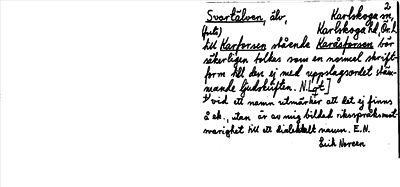 2
Svartälven, älv, Karlskoga sn,
(forts) Karlskoga hd, Ör. l.
till Karforsen stående Karåsforsen bör
säkerligen tolkas som en normel skrift-
form till den ej med uppslagsordet stäm-
mande ljudskriften. N.
1) vid ett namn utmärker att det ej finns
å ek., utan är av mig bildad riksspråksmot-
svarighet till ett dialektalt namn. E.N.
Erik Noreen